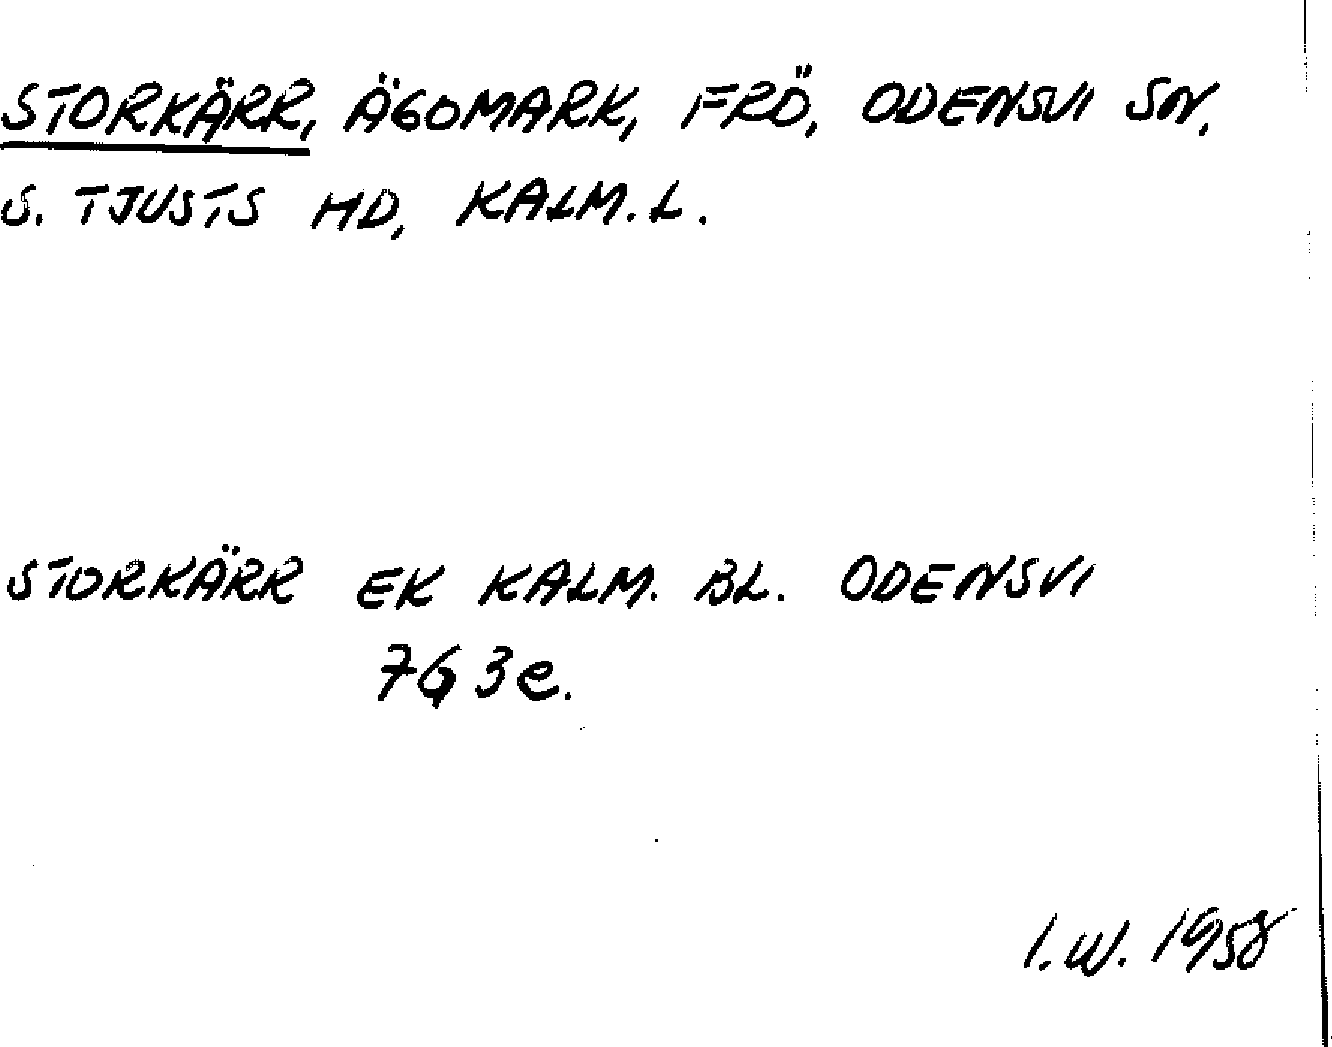 STORKÄRR, ÄGOMARK, FRÖ, ODENSVI SN,
S. TJUSTS HD, KALM. L.
STORKÄRR EK KALM. BL. ODENSVI
7G 3e.
I.W. 1958